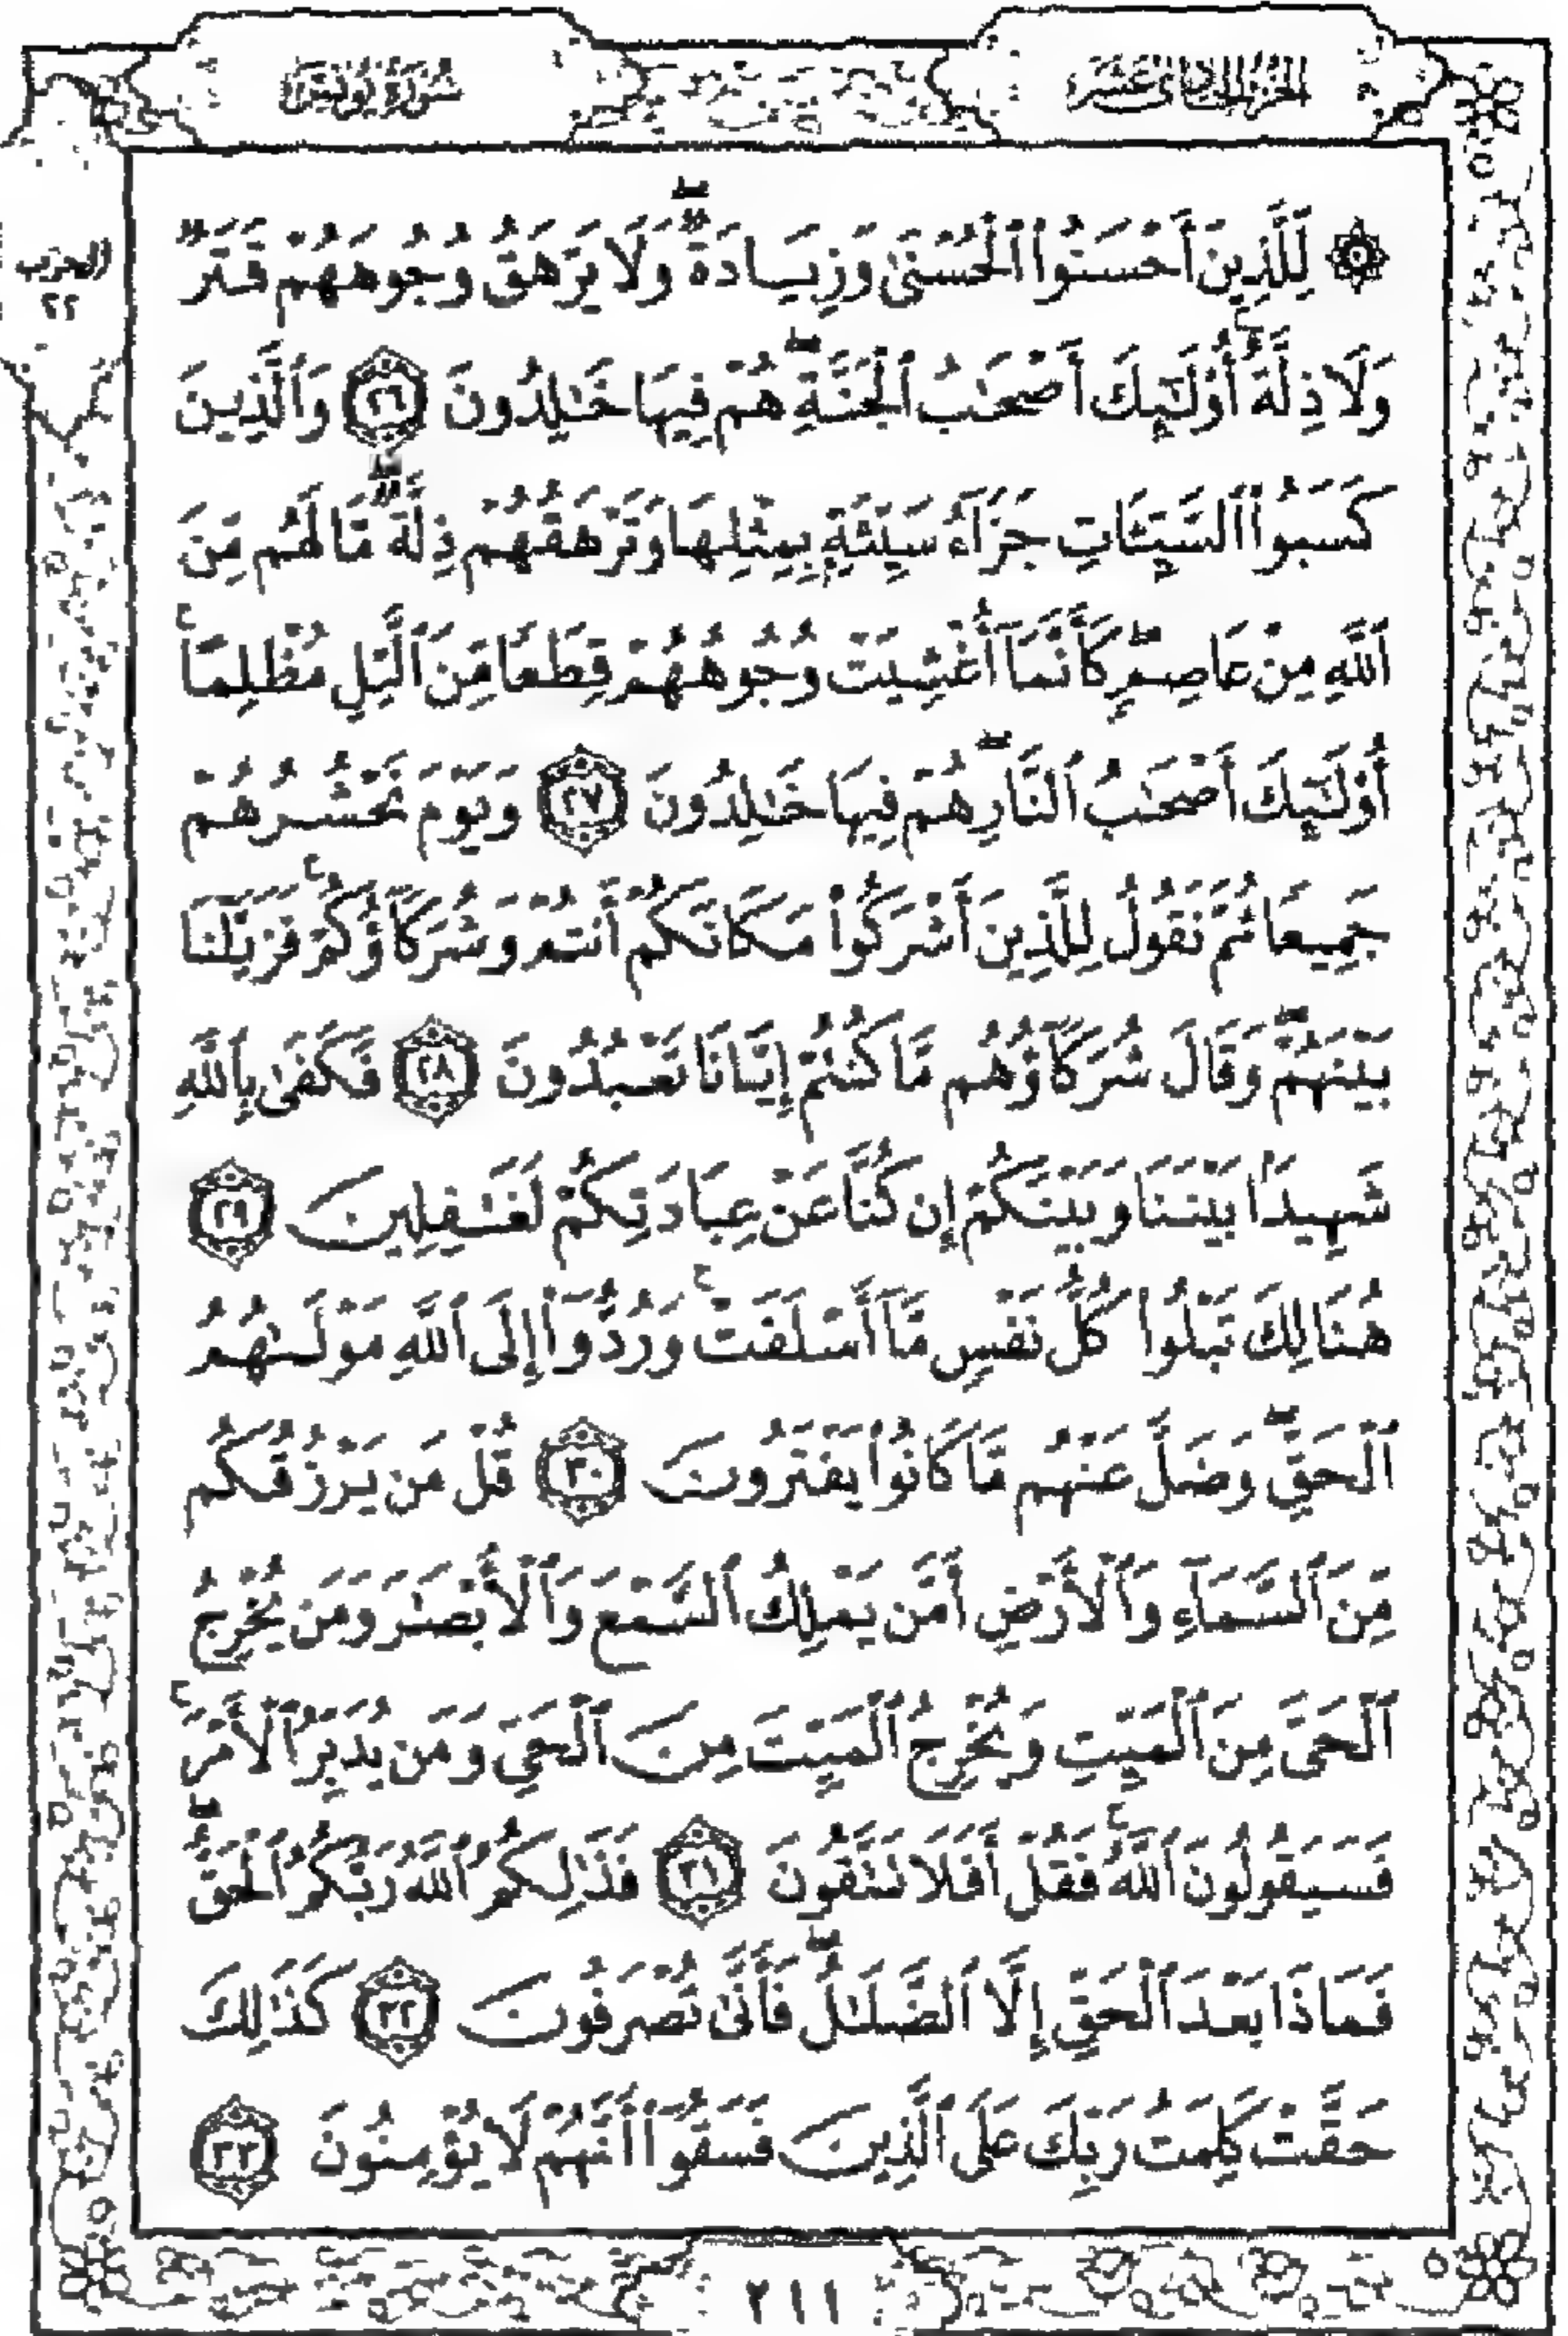 سُورَةُ يُونُسَ
الجُزْءُ الحَادِي عَشَرَ
الحزب
٢٢
۞ لِّلَّذِينَ أَحْسَنُوا۟ ٱلْحُسْنَىٰ وَزِيَادَةٌ ۖ وَلَا يَرْهَقُ وُجُوهَهُمْ قَتَرٌ
وَلَا ذِلَّةٌ ۚ أُو۟لَٰٓئِكَ أَصْحَٰبُ ٱلْجَنَّةِ ۖ هُمْ فِيهَا خَٰلِدُونَ ٢٦ وَٱلَّذِينَ
كَسَبُوا۟ ٱلسَّيِّـَٔاتِ جَزَآءُ سَيِّئَةٍۭ بِمِثْلِهَا وَتَرْهَقُهُمْ ذِلَّةٌ ۖ مَّا لَهُم مِّنَ
ٱللَّهِ مِنْ عَاصِمٍ ۖ كَأَنَّمَآ أُغْشِيَتْ وُجُوهُهُمْ قِطَعًا مِّنَ ٱلَّيْلِ مُظْلِمًا ۚ
أُو۟لَٰٓئِكَ أَصْحَٰبُ ٱلنَّارِ ۖ هُمْ فِيهَا خَٰلِدُونَ ٢٧ وَيَوْمَ نَحْشُرُهُمْ
جَمِيعًا ثُمَّ نَقُولُ لِلَّذِينَ أَشْرَكُوا۟ مَكَانَكُمْ أَنتُمْ وَشُرَكَآؤُكُمْ ۚ فَزَيَّلْنَا
بَيْنَهُمْ ۖ وَقَالَ شُرَكَآؤُهُم مَّا كُنتُمْ إِيَّانَا تَعْبُدُونَ ٢٨ فَكَفَىٰ بِٱللَّهِ
شَهِيدًۢا بَيْنَنَا وَبَيْنَكُمْ إِن كُنَّا عَنْ عِبَادَتِكُمْ لَغَٰفِلِينَ ٢٩
هُنَالِكَ تَبْلُوا۟ كُلُّ نَفْسٍ مَّآ أَسْلَفَتْ ۚ وَرُدُّوٓا۟ إِلَى ٱللَّهِ مَوْلَىٰهُمُ
ٱلْحَقِّ ۖ وَضَلَّ عَنْهُم مَّا كَانُوا۟ يَفْتَرُونَ ٣٠ قُلْ مَن يَرْزُقُكُم
مِّنَ ٱلسَّمَآءِ وَٱلْأَرْضِ أَمَّن يَمْلِكُ ٱلسَّمْعَ وَٱلْأَبْصَٰرَ وَمَن يُخْرِجُ
ٱلْحَىَّ مِنَ ٱلْمَيِّتِ وَيُخْرِجُ ٱلْمَيِّتَ مِنَ ٱلْحَىِّ وَمَن يُدَبِّرُ ٱلْأَمْرَ ۚ
فَسَيَقُولُونَ ٱللَّهُ ۚ فَقُلْ أَفَلَا تَتَّقُونَ ٣١ فَذَٰلِكُمُ ٱللَّهُ رَبُّكُمُ ٱلْحَقُّ ۖ
فَمَاذَا بَعْدَ ٱلْحَقِّ إِلَّا ٱلضَّلَٰلُ ۖ فَأَنَّىٰ تُصْرَفُونَ ٣٢ كَذَٰلِكَ
حَقَّتْ كَلِمَتُ رَبِّكَ عَلَى ٱلَّذِينَ فَسَقُوٓا۟ أَنَّهُمْ لَا يُؤْمِنُونَ ٣٣
٢١١